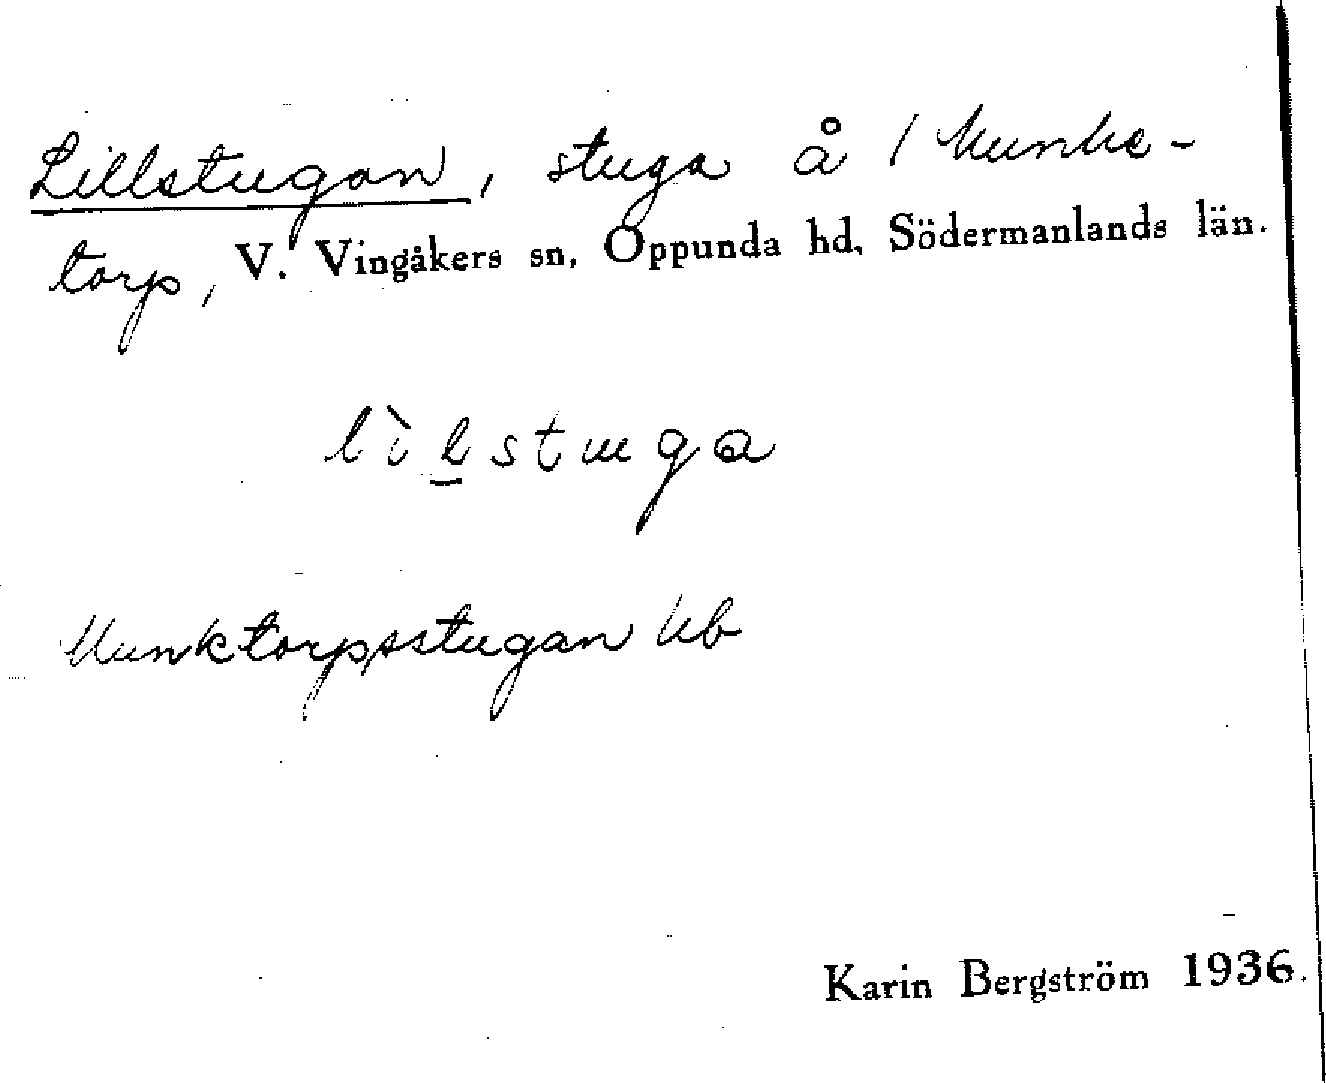 Lillstugan, stuga å 1 Munke-
torp, V. Vingåkers sn, Oppunda hd, Södermanlands län.
lìlstuga
Munktorpsstugan
Karin Bergström 1936.